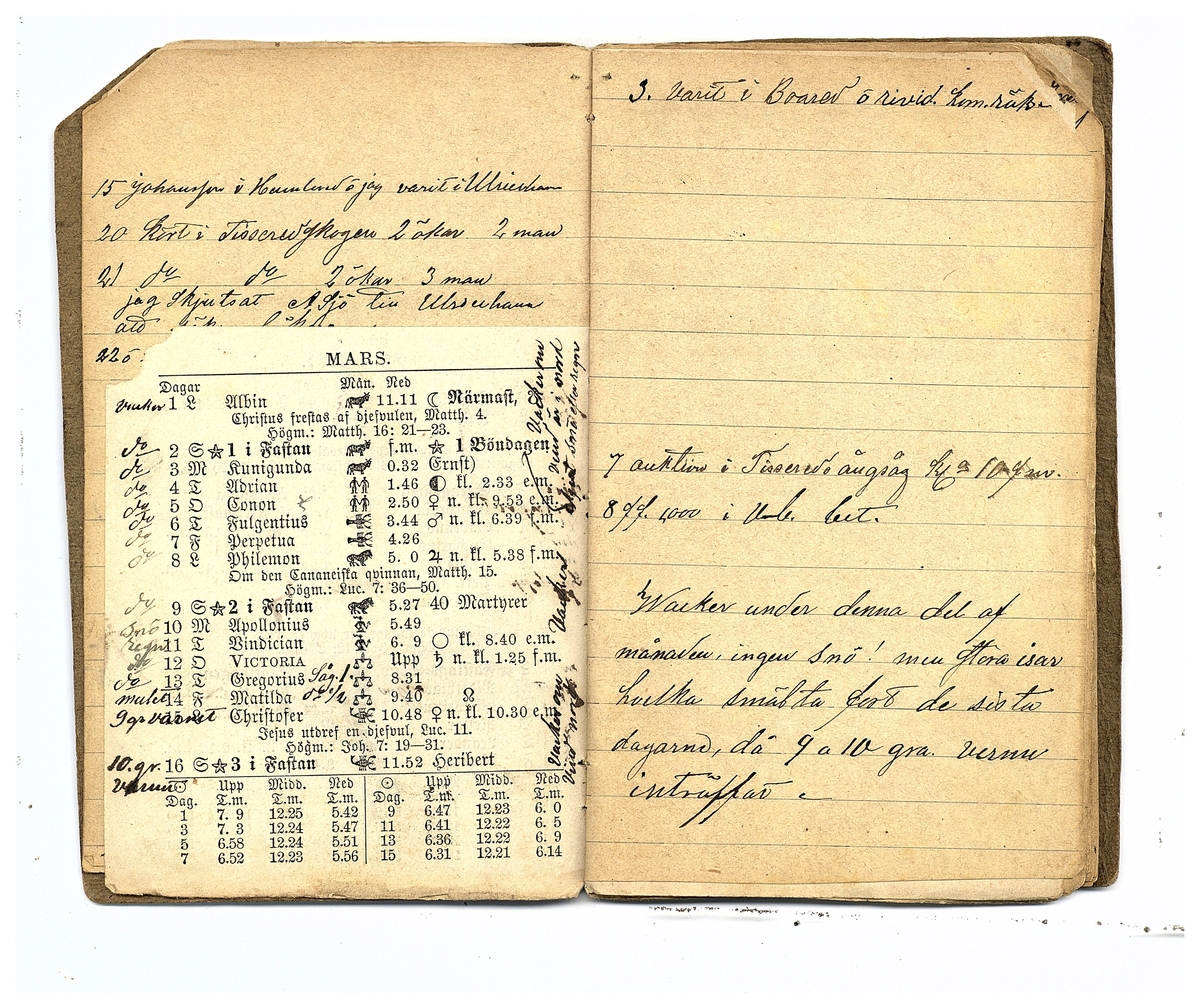 15 Johansson i Humlered o jag varit i Ulriceham
20 Kört i Tisseredskogen 2 ökar 2 man
21 do do 2 ökar 3 man
jag skjutsat A Sjö till Ulriceham
22 o
MARS.
Dagar Mån. Ned
vacker 1 L Albin 11.11 ☾ Närmast,
Christus frestas af djefvulen, Matth. 4.
Högm.: Matth. 16: 21—23.
do 2 S ★ 1 i Fastan f.m. ★ 1 Böndagen
do 3 M Kunigunda 0.32 Ernst)
do 4 T Adrian 1.46 ◐ kl. 2.33 e.m.
do 5 O Conon 2.50 ♀ n. kl. 9.53 e.m.
do 6 T Fulgentius 3.44 ♂ n. kl. 6.39 f.m.
do 7 F Perpetua 4.26
do 8 L Philemon 5. 0 ♃ n. kl. 5.38 f.m.
Om den Cananeiska qvinnan, Matth. 15.
Högm.: Luc. 7: 36—50.
do 9 S ★ 2 i Fastan 5.27 40 Martyrer
Snö 10 M Apollonius 5.49
regn 11 T Vindician 6. 9 ○ kl. 8.40 e.m.
do 12 O VICTORIA Upp ♄ n. kl. 1.25 f.m.
do 13 T Gregorius Såg 1. 8.31
mulet 14 F Matilda do 1/2 9.40 ☊
9 gr varmt 15 L Christofer 10.48 ♀ n. kl. 10.30 e.m.
Jesus utdref en djefvul, Luc. 11.
Högm.: Joh. 7: 19—31.
10. gr. 16 S ★ 3 i Fastan 11.52 Heribert
varmt ☉ Upp Midd. Ned ☉ Upp Midd. Ned
Dag. T.m. T.m. T.m. Dag. T.m. T.m. T.m.
1 7. 9 12.25 5.42 9 6.47 12.23 6. 0
3 7. 3 12.24 5.47 11 6.41 12.22 6. 5
5 6.58 12.24 5.51 13 6.36 12.22 6. 9
7 6.52 12.23 5.56 15 6.31 12.21 6.14
3. Varit i Boared o rivid. kom.räk.
7 auktion i Tissereds ångsåg kl 10 f.m.
8 1,000 i bet.
Wacker under denna del af
månaden, ingen snö! men stora isar
hvilka smälta fort de sista
dagarne, då 9 a 10 gra. verme
inträffat